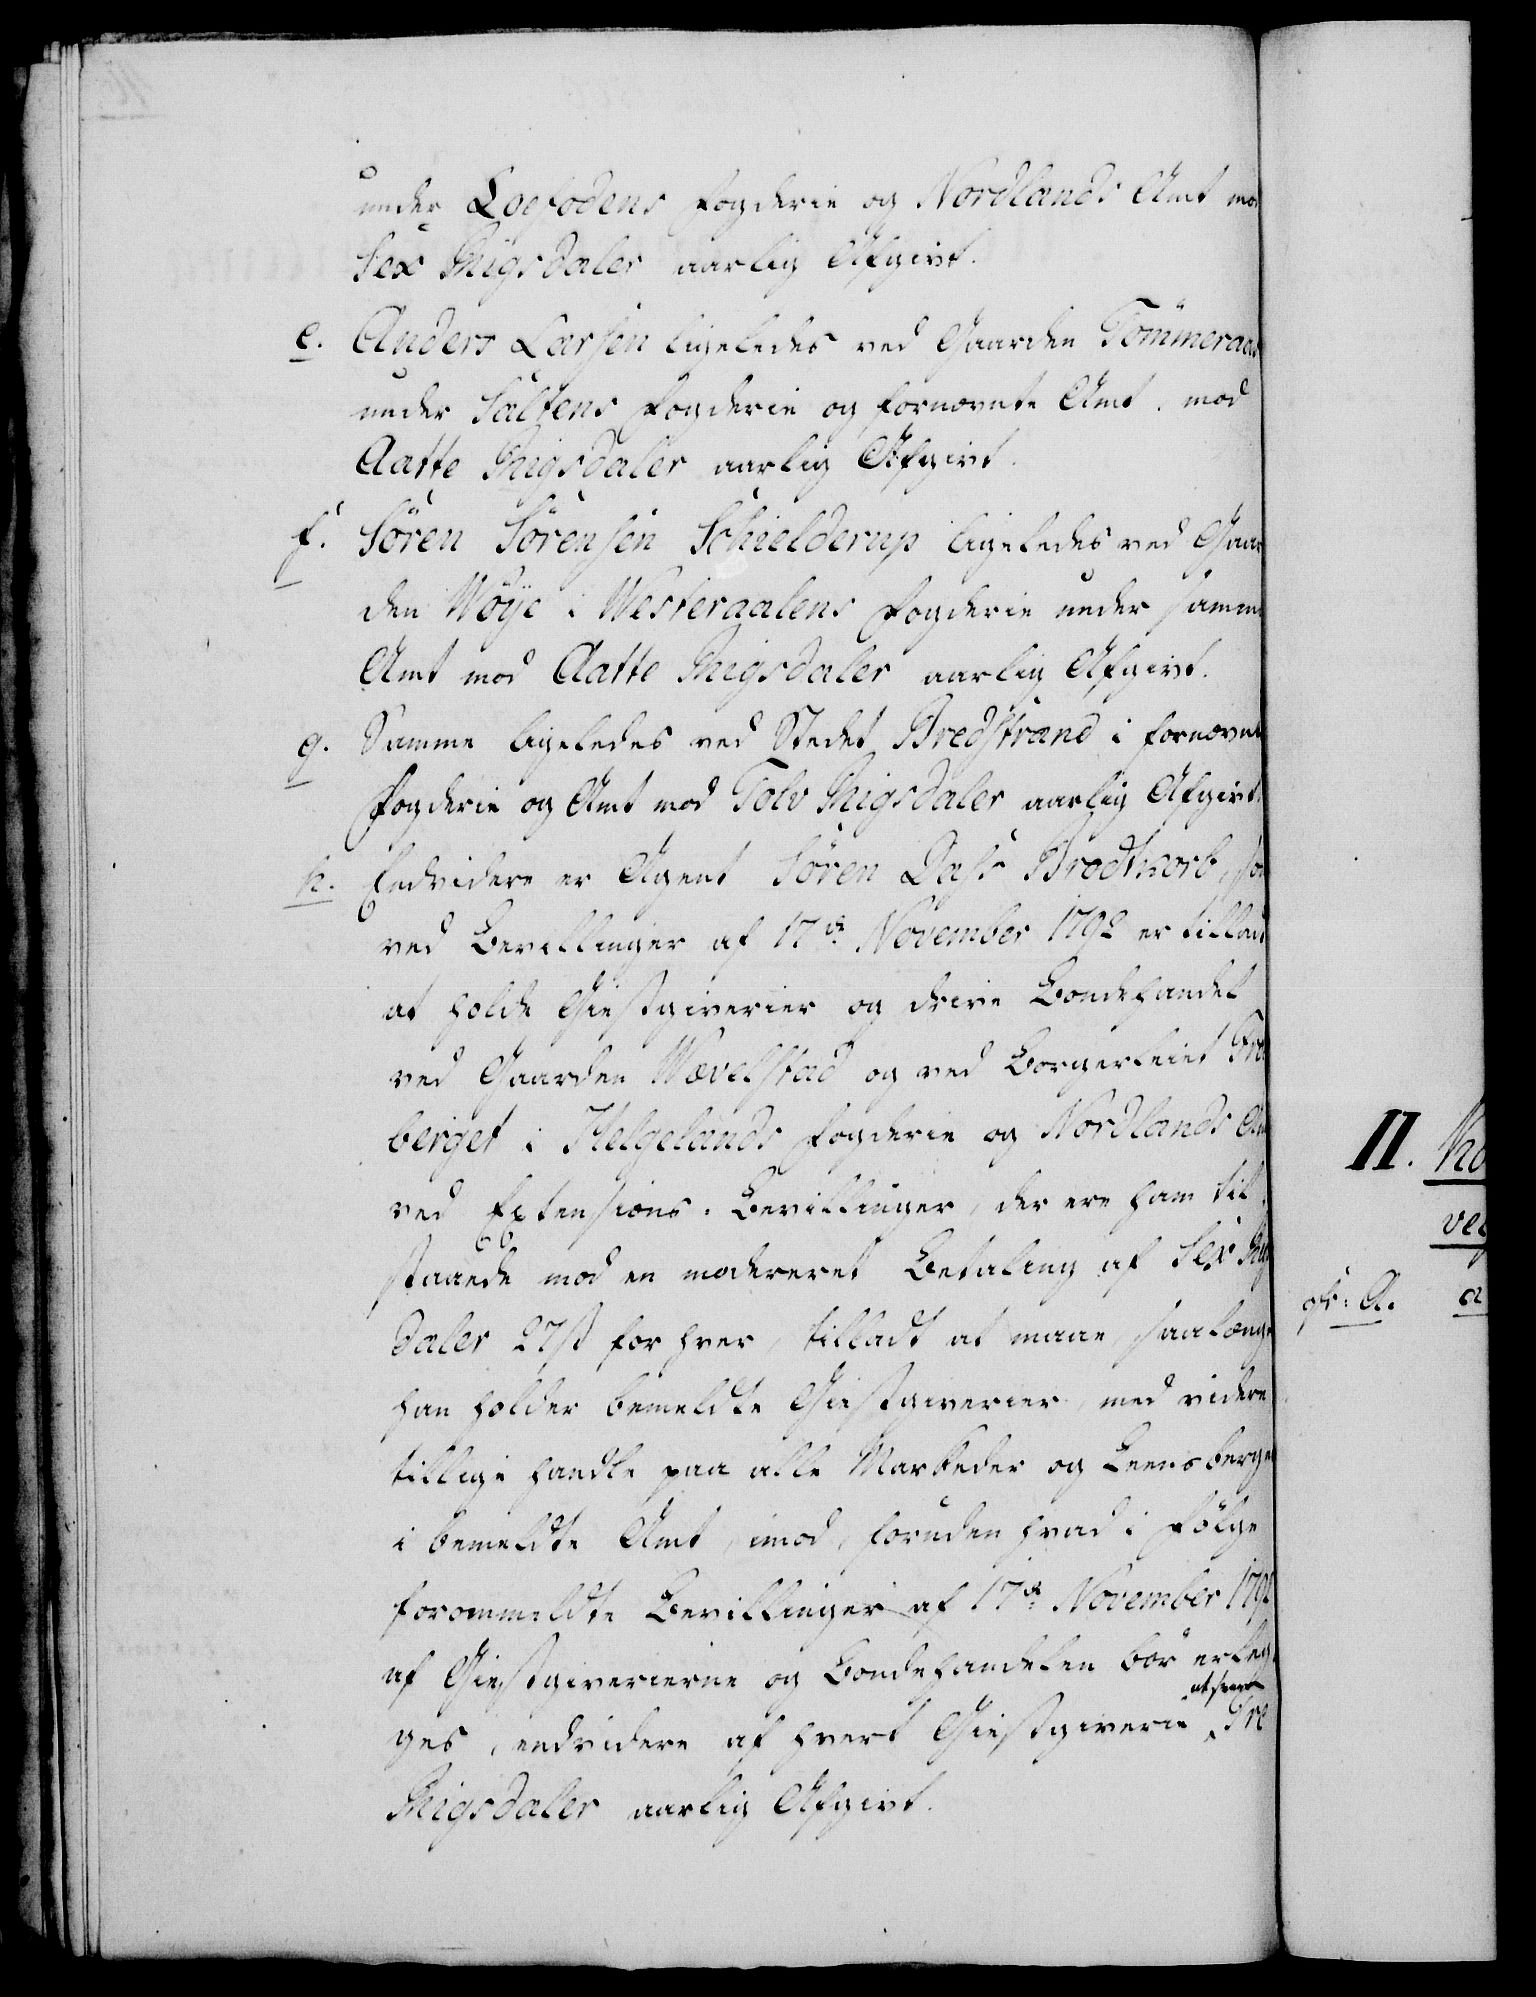 under Loefodens Fogderie og Nordlands Amt mod
Sex Rigsdaler aarlig Afgivt.
e. Anders Larsen ligeledes ved Gaarden Tömmeraas
under Saltens Fogderie og fornævnte Amt, mod
Aatte Rigsdaler aarlig Afgivt.
f. Sören Sörensen Schielderup ligeledes ved Gaar
den Wöÿe i Westeraalens Fogderie under samme
Amt mod Aatte Rigsdaler aarlig Afgivt.
g. Samme ligeledes ved Stedet Bredstrand i fornævnte
Fogderie og Amt mod Tolv Rigsdaler aarlig Afgivt.
h. Endvidere er Agent Sören Dass Brodtkorb, som
ved Bevillinger af 17de November 1792 er tilladt
at holde Giestgiverier og drive Bondehandel
ved Gaarden Wævelstad og ved Borgerleiet
berget i Helgelands Fogderie og Nordlands Amt
ved Extensions-Bevillinger, der ere ham til-
staaede mod en modereret Betaling af Sex Rigs
daler 27 ß for hver, tilladt at maae, saalænge
han holder bemeldte Giestgiverier, med videre
tillige handle paa alle Markeder og Leensberge
i bemeldte Amt, imod, foruden hvad i Fölge
forommeldte Bevillinger af 17de November 1792
af Giestgiverierne og Bondehandelen bör erleg-
ges, endvidere af hvert Giestgiverie at svare Tre
Rigsdaler aarlig Afgivt.
II.
A. a